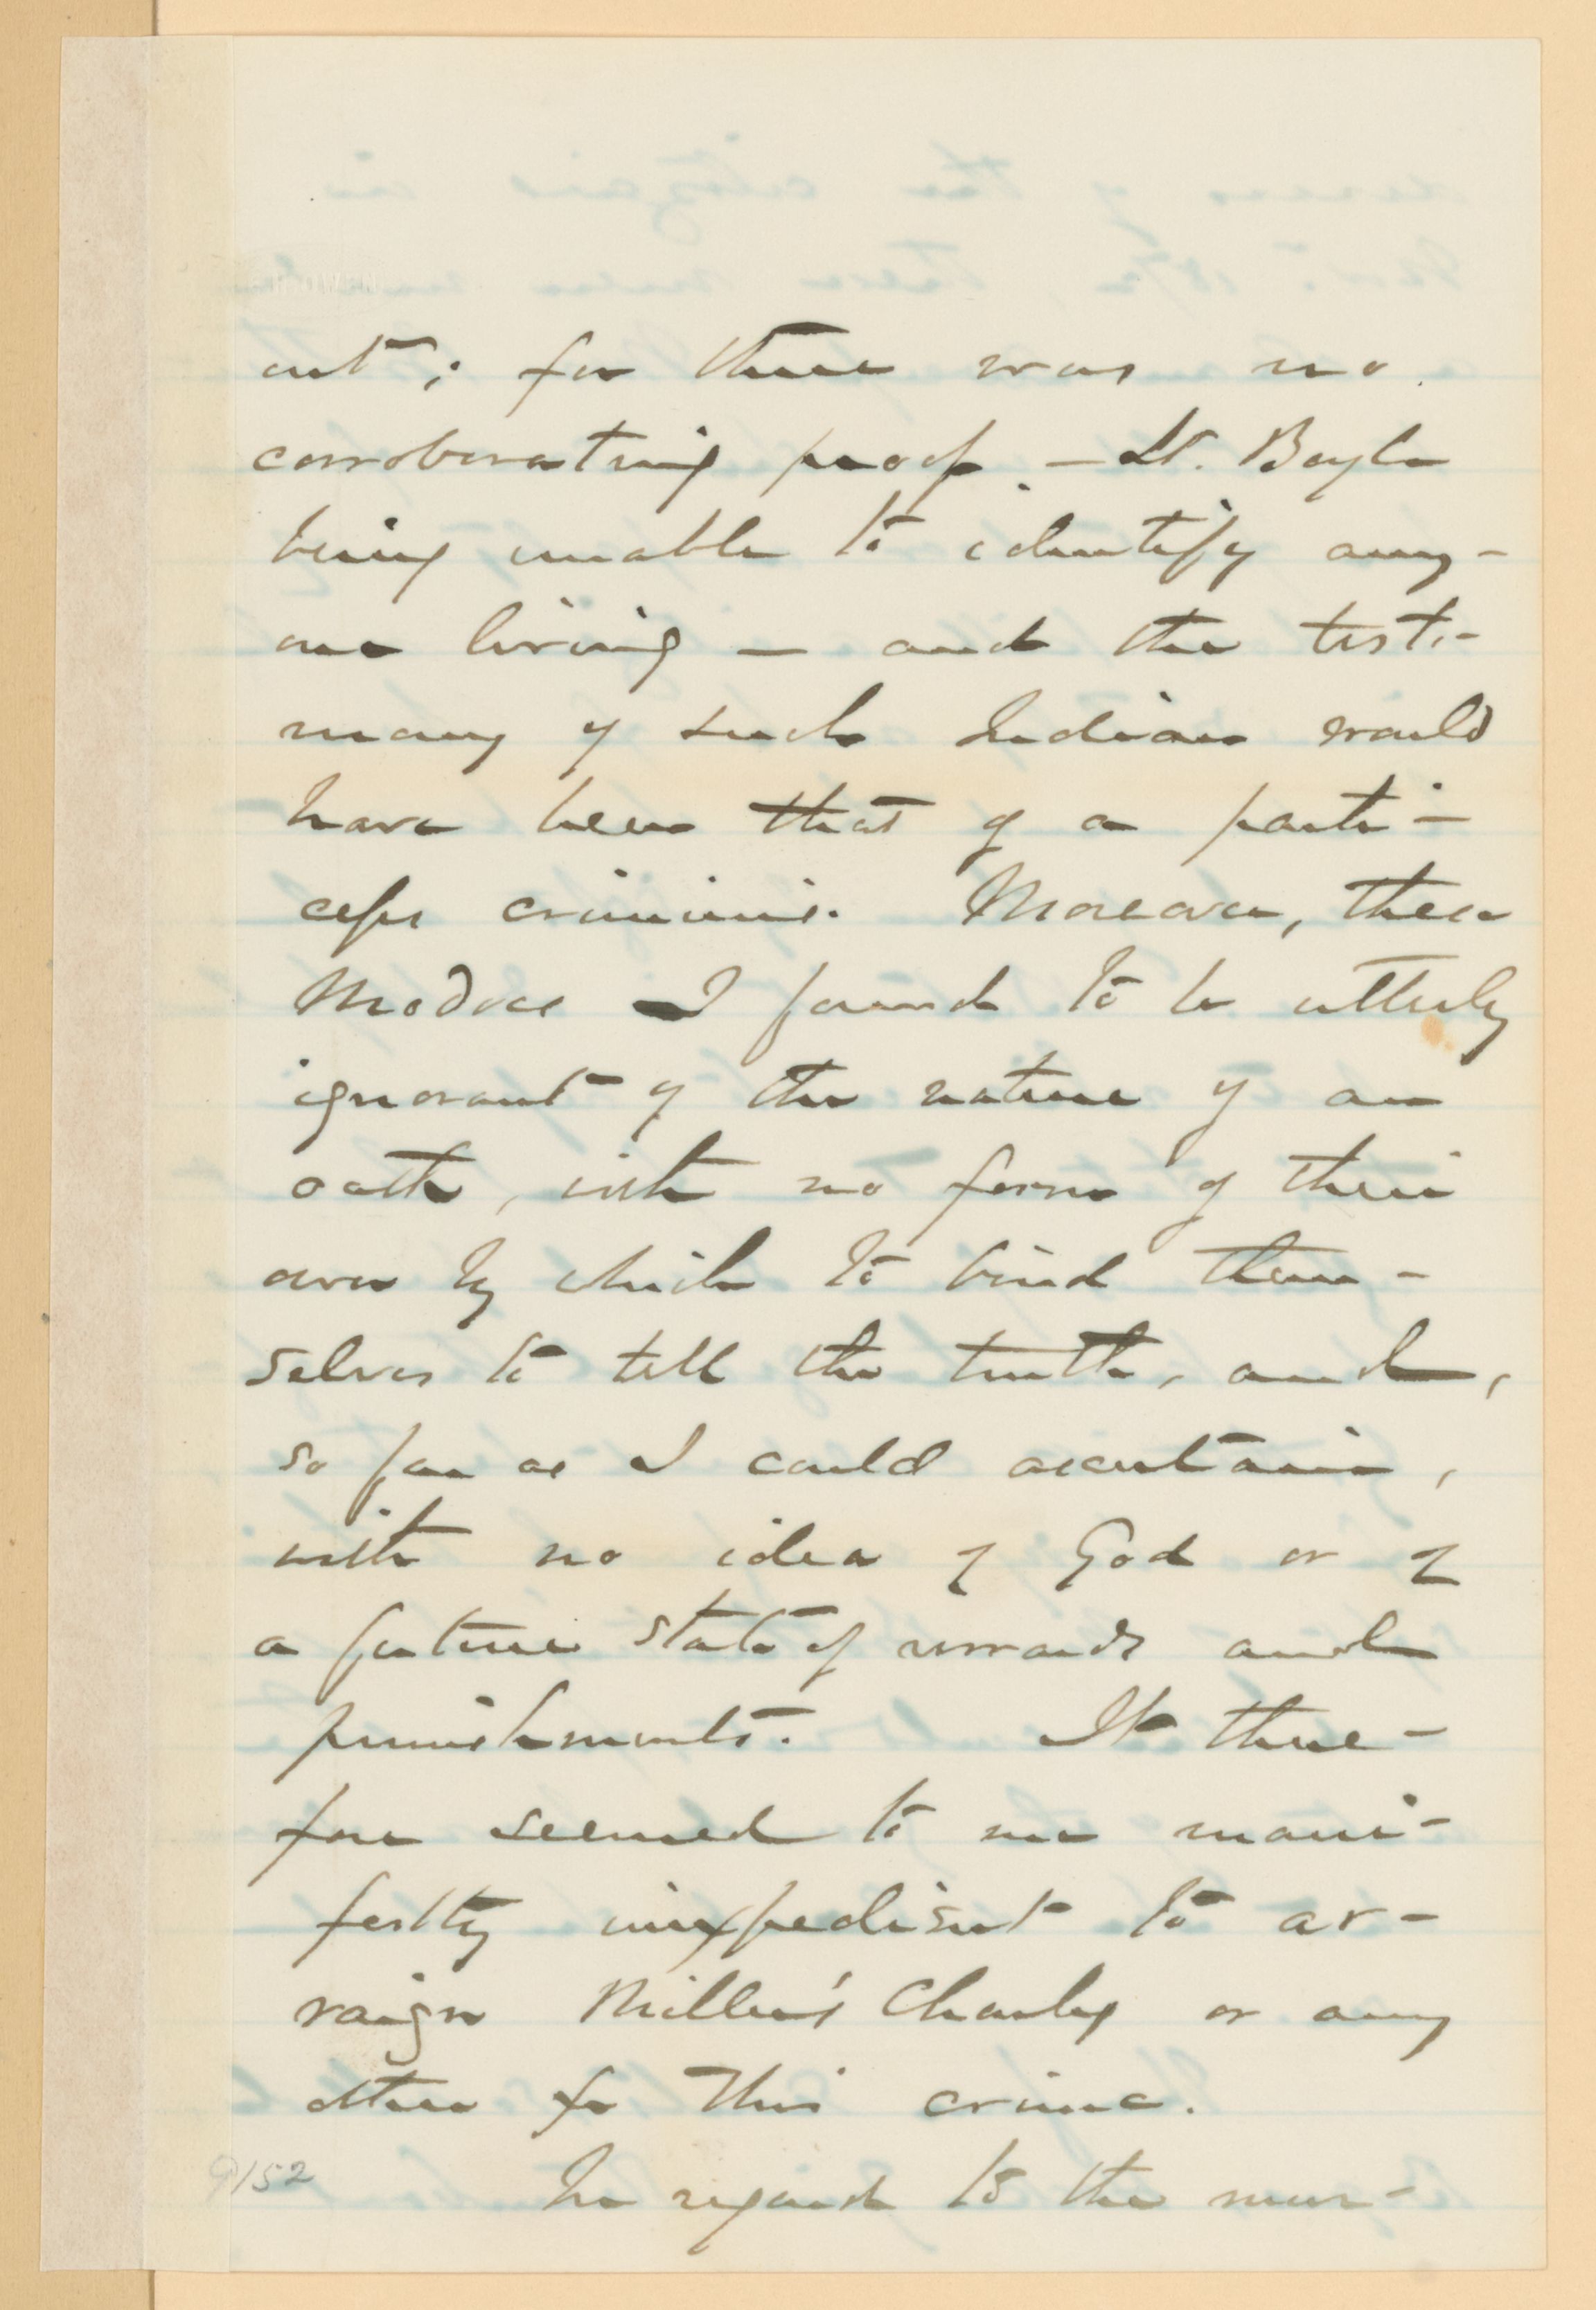 out; for there was no
corroborating proof - Lt. Boyle
being unable to identify any-
one living - and the testi-
mony of such Indians would
have been that of a parti-
ceps criminis. Moreover, these
Modocs I found to be utterly
ignorant of the nature of an
oath, with no form of their
own by which to bind them-
selves to tell the truth, and,
so far as I could ascertain,
with no idea of God or of
a future state of rewards and
punishments. It there-
fore seemed to me mani-
festly inexpedient to ar-
raign Miller's Charley or any
other for this crime.
In regard to the mur-
9/52